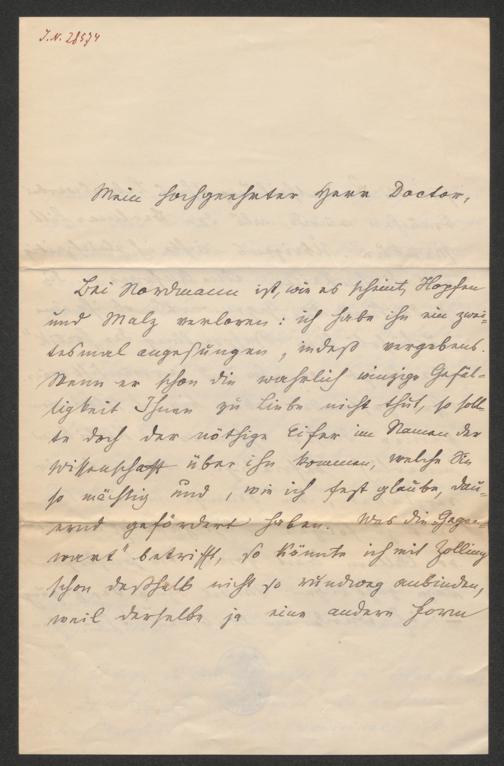 J.N. 28574
Mein hochgeehrter Herr Doctor,
Bei Nordmann ist, wie es scheint, Hopfen
und Malz verloren: ich habe ihn ein zwei-
tesmal angesungen, indeß vergebens.
Wenn er schon die wahrlich winzige Gefäl-
ligkeit Ihnen zu Liebe nicht thut, so soll-
te doch der nöthige Eifer im Namen der
Wissenschaft über ihn kommen, welche Sie
so mächtig und, wie ich fest glaube, dau-
ernd gefördert haben. Was die „Gegen-
wart" betrifft, so könnte ich mit Zolling
schon deßhalb nicht so rundweg anbinden,
weil derselbe ja eine andere Form